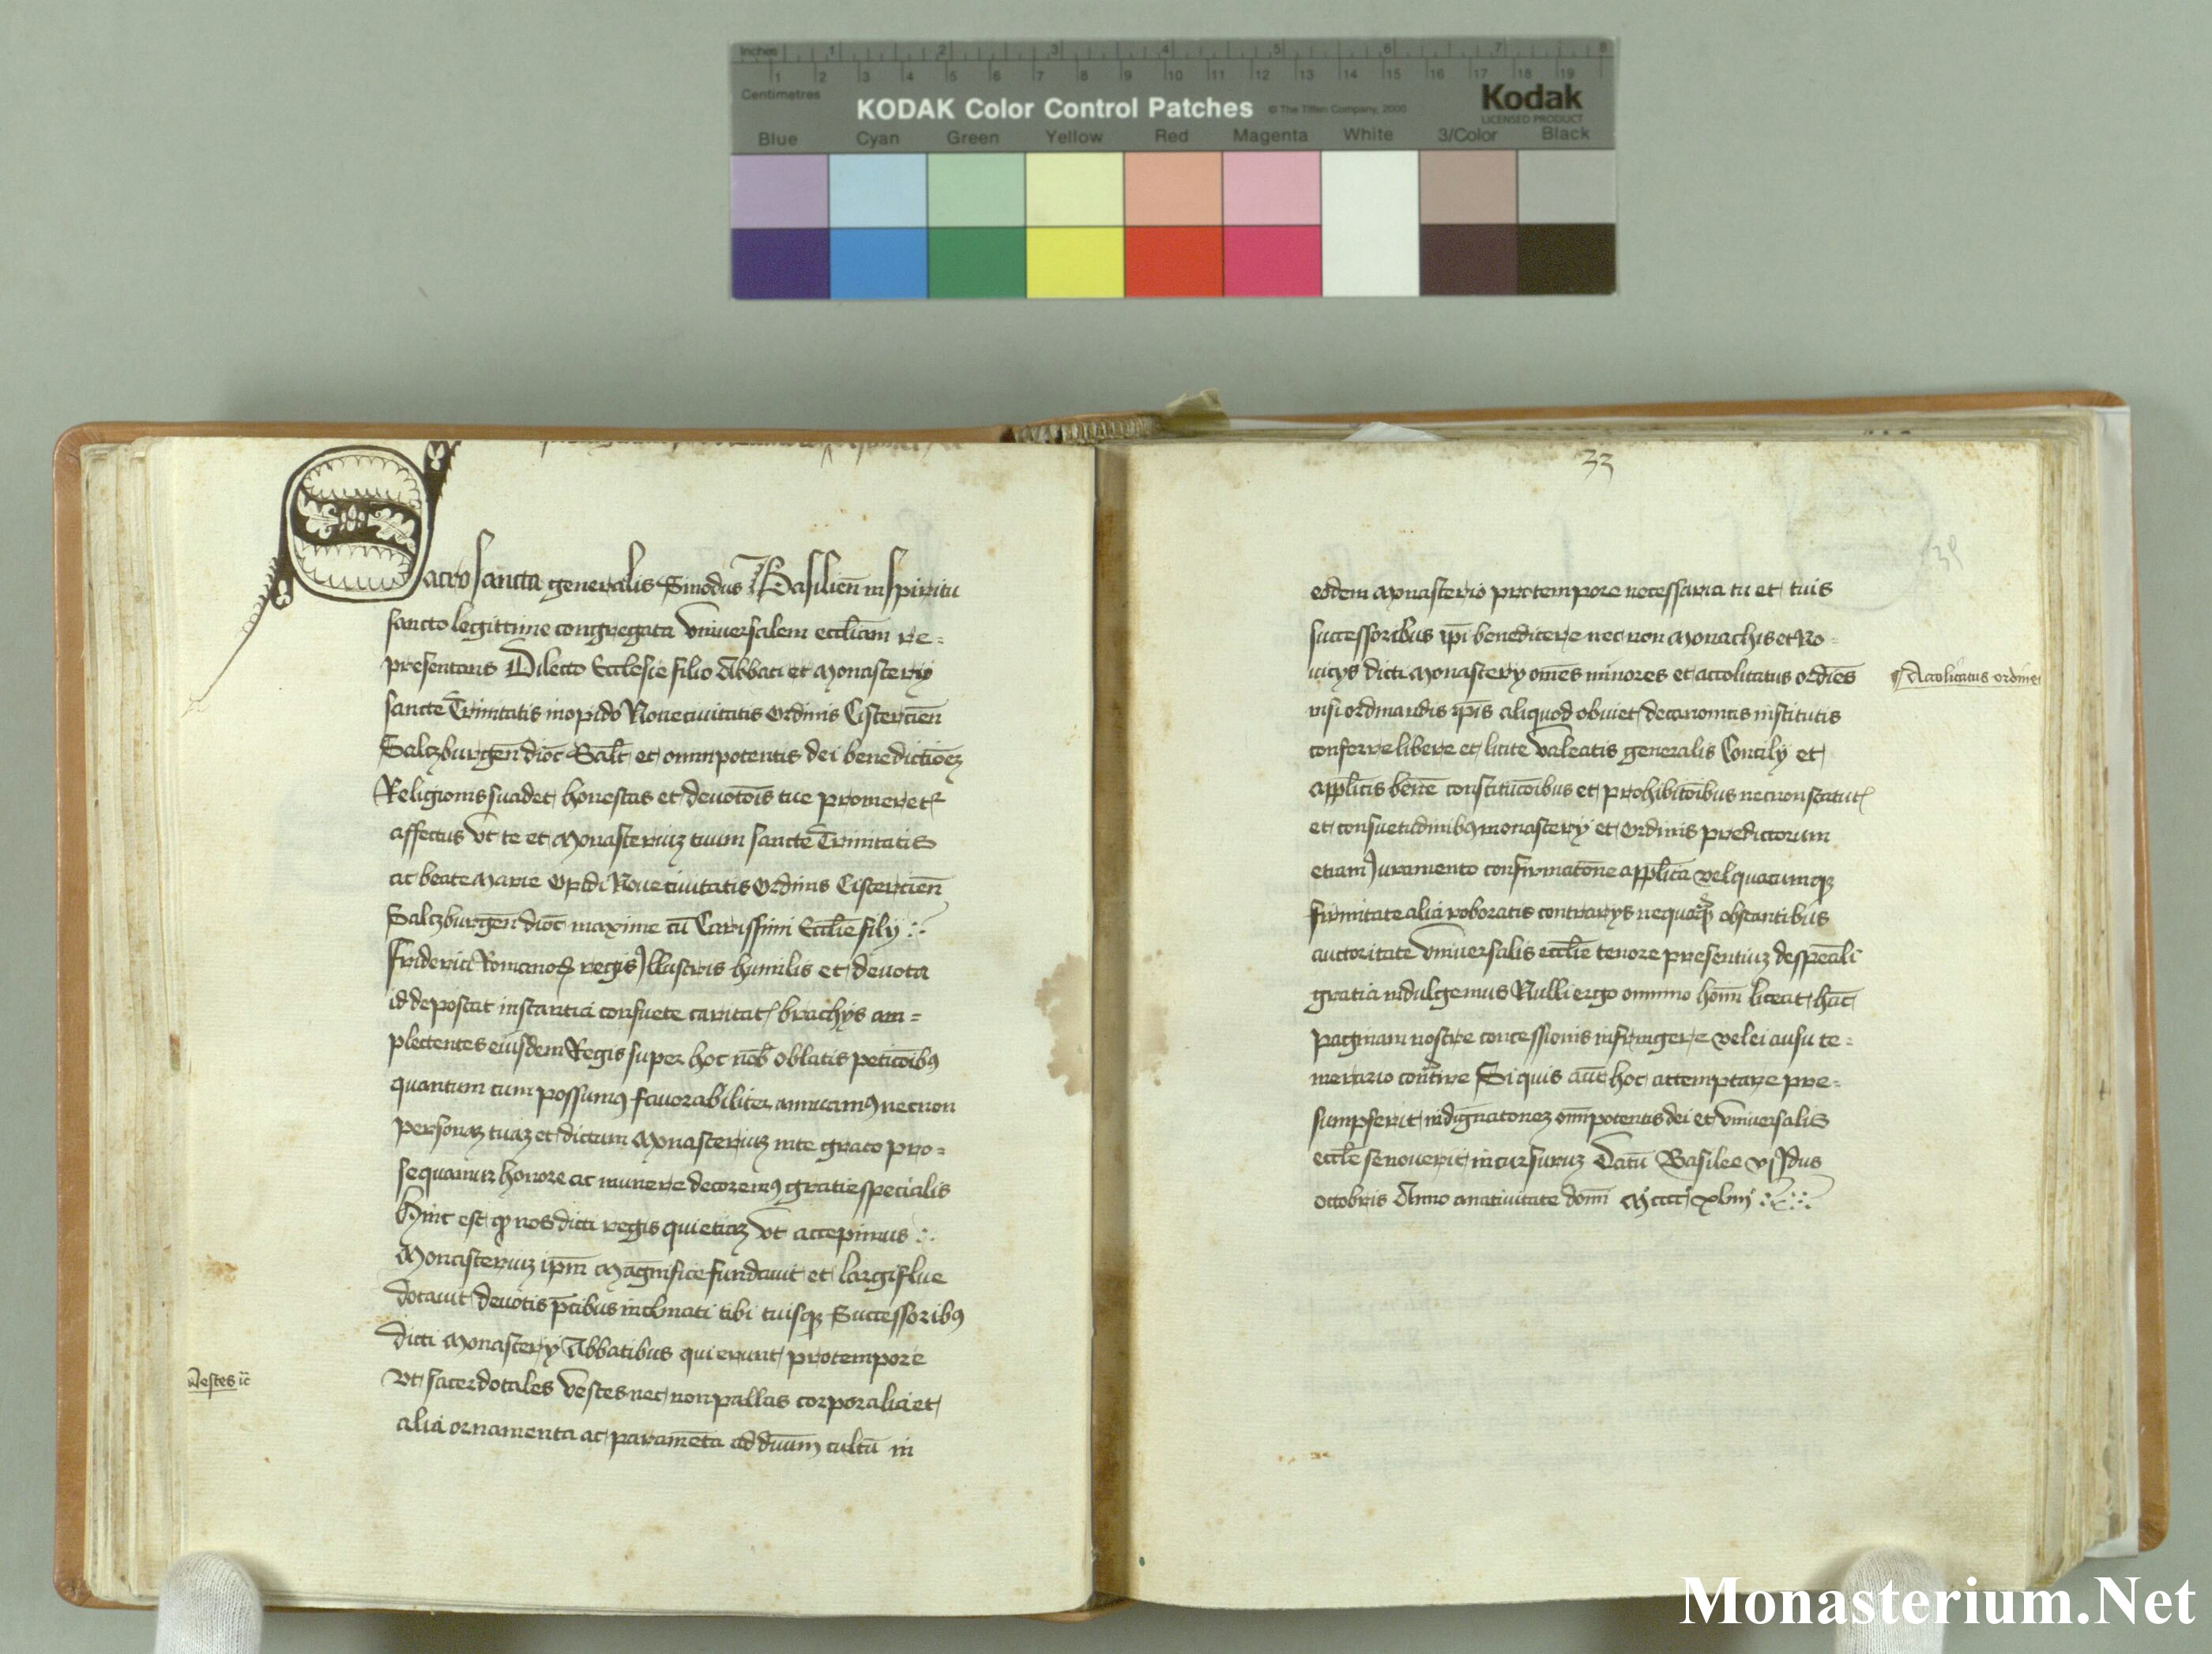 Inches 1 2 3 4 5 6 7 8
1 2 3 4 5 6 7 8 9 10 11 12 13 14 15 16 17 18 19
Centimetres
KODAK Color Control Patches © The Tiffen Company, 2000 Kodak
LICENSED PRODUCT
Blue Cyan Green Yellow Red Magenta White 3/Color Black
Sacrosancta generalis Sinodus Basilien̄ in spiritu
sancto legittime congregata vniuersalem eccliam̄ re=
presentans Dilecto Ecclesie filio Abbati et Monastery
sancte Trinitatis in opido Noue ciuitatis Ordinis Cistercien̄
Salczburgen̄ dioc̄ Salt̄ et omnipotentis dei benedictiōez
Religionis suadet honestas et deuotōis tue promeretr
affectus vt te et Monasteriuz tuum sancte Trinitatis
ac beate Marie Opidi Noue ciuitatis Ordinis Cistercien̄
Salczburgen̄ dioc̄ maxime cū Carissimi Eccl̄ie fily
Friderici Romanoꝝ regis Illustris humilis et deuota
id deposcat instantia consuete caritat brachys am=
plectentes eiusdem Regis super hoc nob̄ oblatis peticōibꝯ
quantum cum possumꝯ fauorabiliter annuamꝯ necnon
personaz tuaz et dictum Monasteriuz in te grato pro=
sequamur honore ac munere decoremꝯ gratie specialis
Hinc est ꝙ nos dicti regis qui eticiaz vt accepimus
Monasteriuz ip̄m Magnifice fundauit et largiflue
dotauit deuotis p̄cibus inclinati tibi tuisqꝫ Successoribꝯ
dicti Monastery Abbatibus qui erunt pro tempore
Vestes ic̄
vt sacerdotales vestes nec non pallas corporalia et
alia ornamenta ac paramēta ad diuīum cultū in
33
39
eodem Monasterio pro tempore necessaria tu et tuis
successoribus ip̄i benedicere nec non Monachis et No=
uicys dicti Monastery om̄es minores et accolitatus ordīes
Accolitatus ordines
nisi ordinandis ip̄is aliquod obuiet de canonicis institutis
conferre libere et licite valeatis generalis Concily et
appl̄icis ben̄e constitucōibus et prohibitōibus necnon statut
et consuetudinibꝯ monastery et Ordinis predictorum
etiam Juramento confirmatōne appl̄ica vel quacumqꝫ
firmitate alia roboratis contrarys nequaꝙ̄ obstantibus
auctoritate vniuersalis eccl̄ie tenore presentiuz de spēcali
gratia indulgemus Nulli ergo omnino hōm̄ liceat hāc
paginam nostre concessionis infringere vel ei ausu te=
merario cont̄ire Si quis aūt hoc attemptare pre=
sumpserit indignatōnez om̄ipotentis dei et vniuersalis
eccl̄ie se nouerit incursuruz Datū Basilee vj Idus
octobris Anno a natiuitate dom̄i Mcccc xliiij
Monasterium.Net